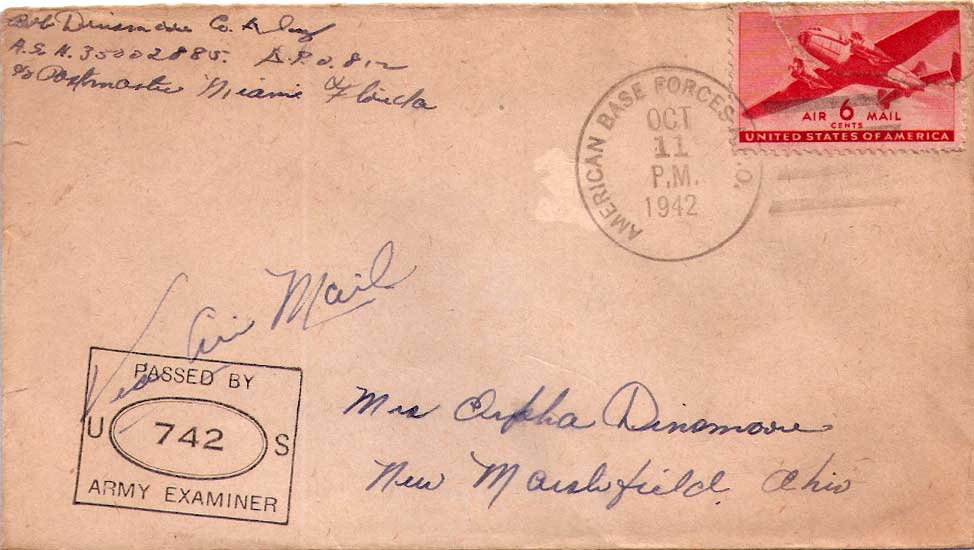 Bob Dinsmore Co. A Inf
A.S.N. 35002885. A.P.O. 812
c/o Postmaster Miami Florida
AMERICAN BASE FORCES A.P.O.
OCT
11
P.M.
1942
AIR 6 MAIL
CENTS
UNITED STATES OF AMERICA
Via Air Mail
PASSED BY
U 742 S
ARMY EXAMINER
Mrs Orpha Dinsmore
New Marshfield Ohio